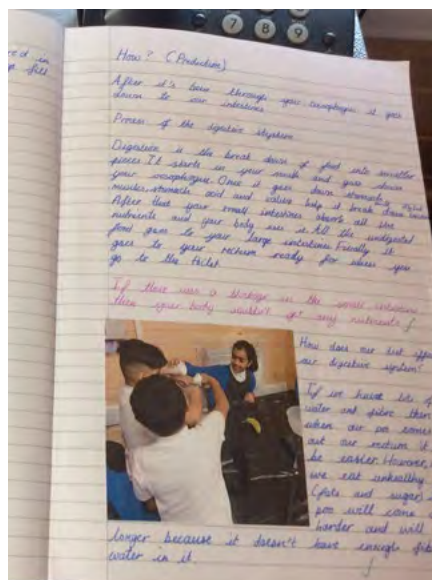 7 8 9
ed in
fill
How? (Production)
After it's been through you oesophagus it goes
down to our intestines.
Process of the digestive stystem
Digestion is the break down of food into smaller
pieces. It starts in your mouth and goes down
your oesophagus. Once it goes down stomach,
muscles, stomach acid and saliva help it break down
After that your small intestines absorb all the
nutrients and your body uses it. All the undigested
food goes to your large intestines. Finally it
goes to your rectum ready for when you
go to the toilet.
If there was a blockage in the small intestine
then your body wouldn't get any nutrients.
How does our diet
our digestive system?
If we have lots of
water and fibre then
when our poo comes
out our rectum it
be easier. However,
we eat unhealthy
(fats and sugar)
poo will come
harder and will
longer because it doesn't have enough
water in it.